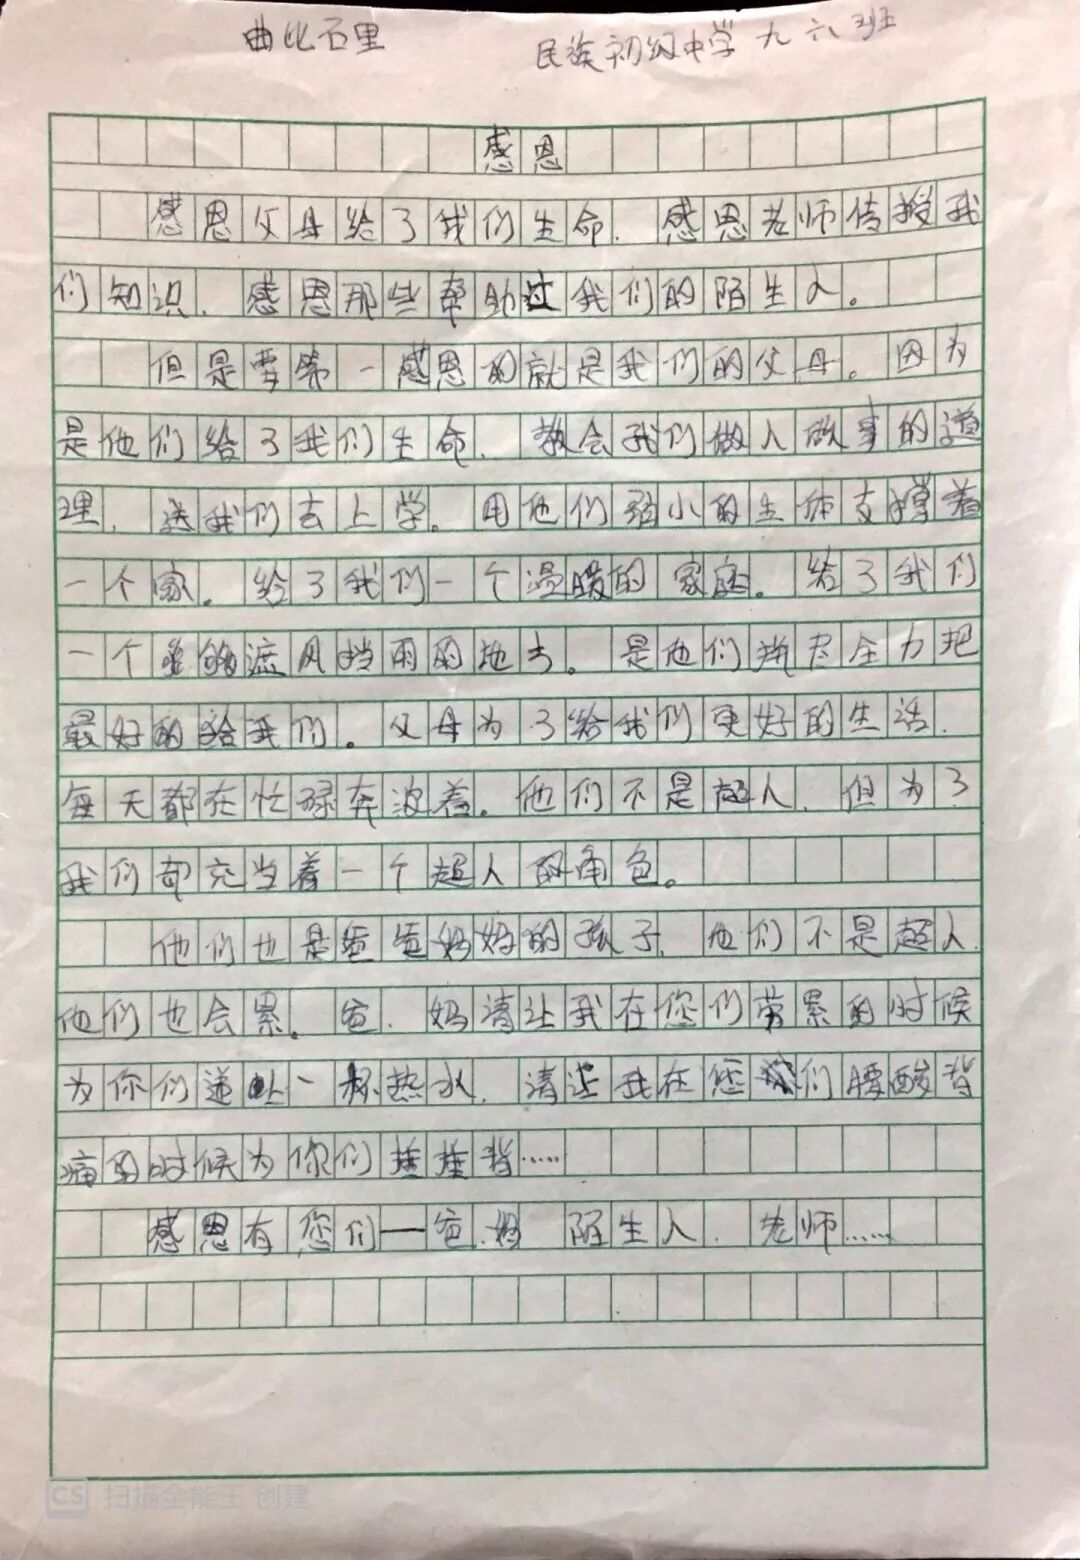 曲比石里 民族初级中学九六班
感恩
感恩父母给了我们生命. 感恩老师传授我
们知识. 感恩那些帮助过我们的陌生人。
但是要第一感恩的就是我们的父母。因为
是他们给了我们生命. 教会我们做人做事的道
理. 送我们去上学。用他们弱小的生体支撑着
一个家。给了我们一个温暖的家庭。给了我们
一个能够遮风挡雨的地方。是他们尽全力把
最好的给我们。父母为了给我们更好的生活.
每天都在忙碌奔波着。他们不是超人. 但为了
我们却充当着一个超人的角色。
他们也是爸爸妈妈的孩子. 他们不是超人.
他们也会累。爸. 妈请让我在您们劳累的时候
为你们递上一杯热水. 请让我在您们腰酸背
痛的时候为你们捶捶背……
感恩有您们——爸.妈 陌生人. 老师……
CS 扫描全能王 创建